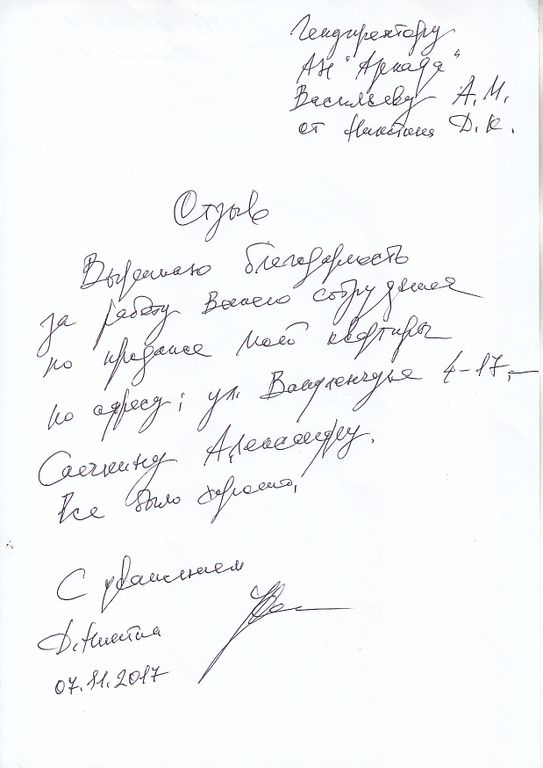 Гендиректору
АН "Аркада"
Васильеву А.М.
от Никитина Д.К.
Отзыв
Выражаю благодарность
за работу Вашего сотрудника
по продаже моей квартиры
по адресу: ул. 4-17,-
Александру.
Все было хорошо,
С уважением
Д. Никитин
07.11.2017